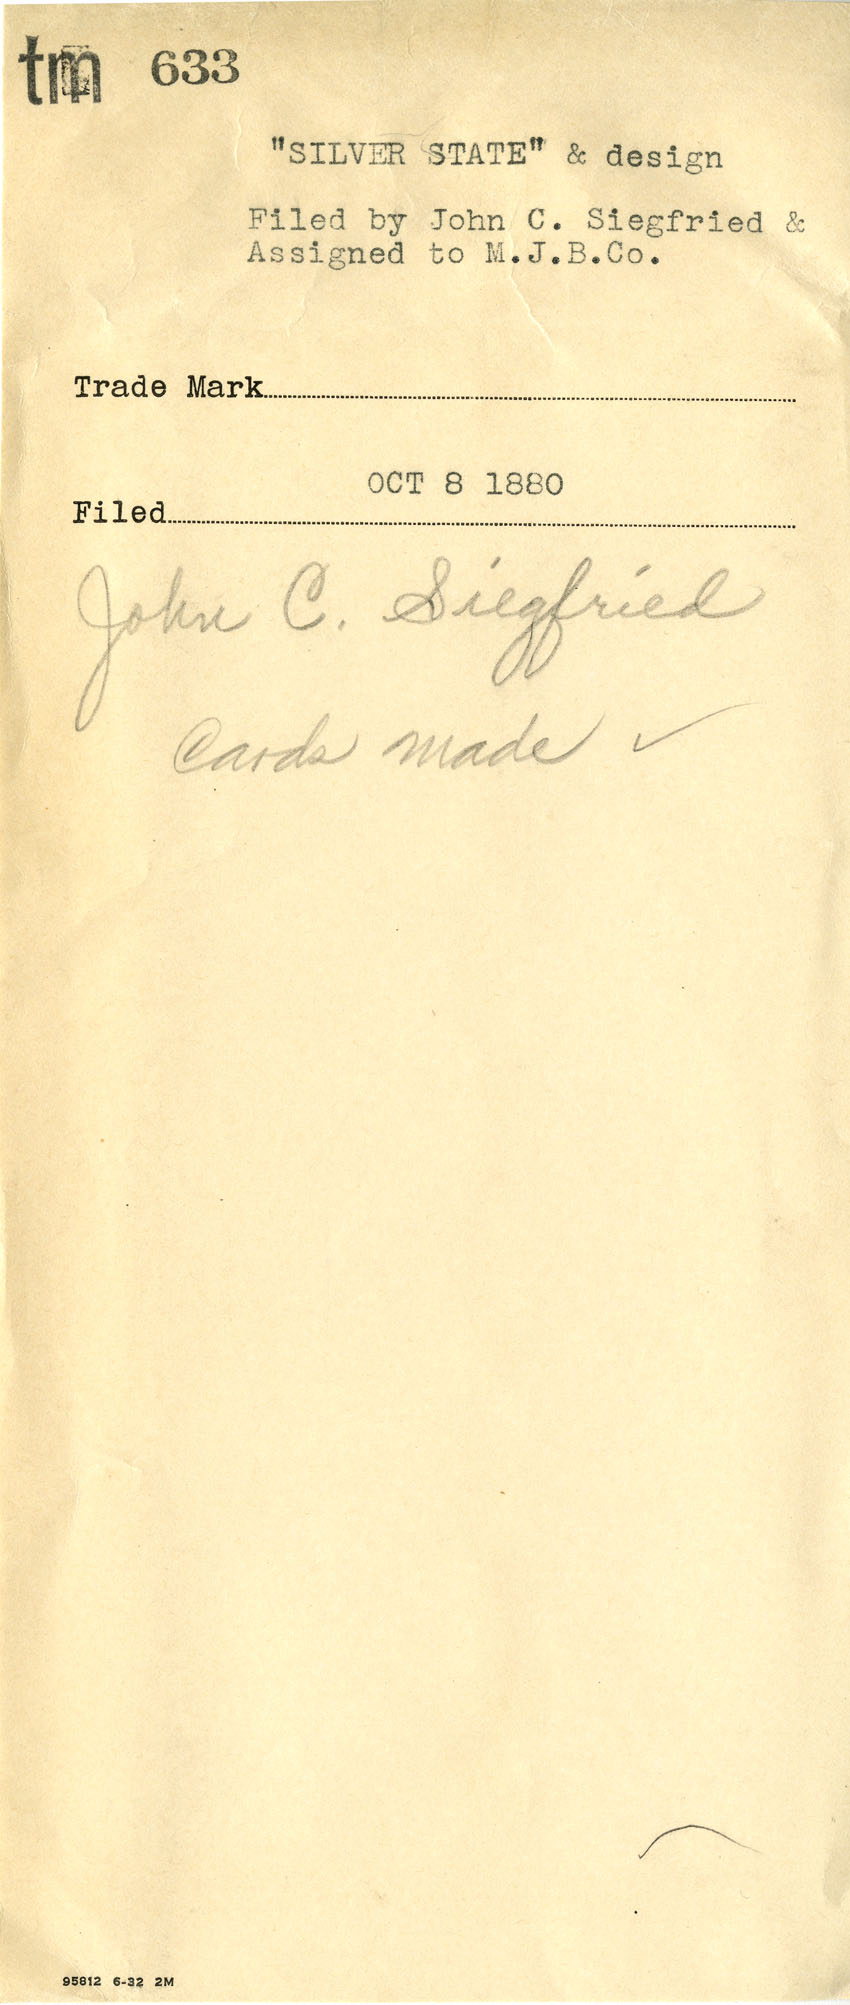 tm 633
"SILVER STATE" & design
Filed by John C. Siegfried &
Assigned to M.J.B.Co.
Trade Mark
OCT 8 1880
Filed
John C. Siegfried
Cards made ✓
95812 6-32 2M